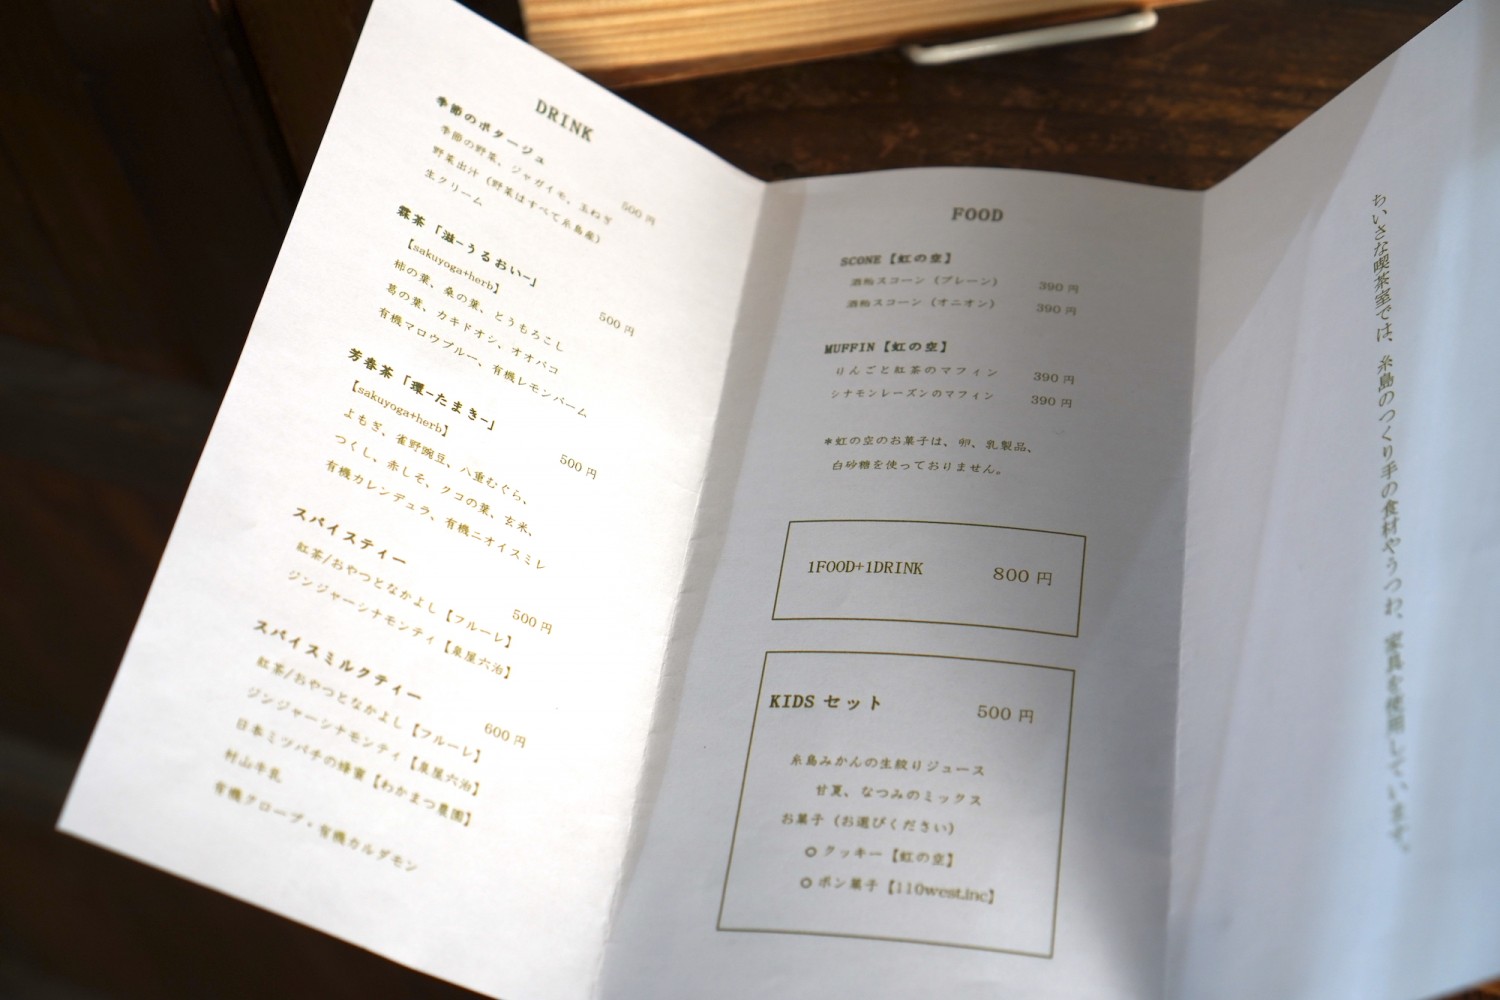 DRINK
季節のポタージュ
500円
季節の野菜、ジャガイモ、玉ねぎ
野菜出汁(野菜はすべて糸島産)
生クリーム
霖茶「滋-うるおい-」
【sakuyoga+herb】
500円
柿の葉、桑の葉、とうもろこし
葛の葉、カキドオシ、オオバコ
有機マロウブルー、有機レモンバーム
芳春茶「環-たまき-」
【sakuyoga+herb】
500円
よもぎ、雀野豌豆、八重むぐら、
つくし、赤しそ、クコの葉、玄米、
有機カレンデュラ、有機ニオイスミレ
スパイスティー
500円
紅茶/おやつとなかよし【フルーレ】
ジンジャーシナモンティ【泉屋六治】
スパイスミルクティー
600円
紅茶/おやつとなかよし【フルーレ】
ジンジャーシナモンティ【泉屋六治】
日本ミツバチの蜂蜜【わかまつ農園】
村山牛乳
有機クローブ・有機カルダモン
FOOD
SCONE【虹の空】
酒粕スコーン(プレーン) 390円
酒粕スコーン(オニオン) 390円
MUFFIN【虹の空】
りんごと紅茶のマフィン 390円
シナモンレーズンのマフィン 390円
*虹の空のお菓子は、卵、乳製品、
白砂糖を使っておりません。
1FOOD+1DRINK 800円
KIDSセット 500円
糸島みかんの生絞りジュース
甘夏、なつみのミックス
お菓子(お選びください)
◎クッキー【虹の空】
◎ポン菓子【110west.inc】
ちいさな喫茶室では、糸島のつくり手の食材やうつわ、家具を使用しています。